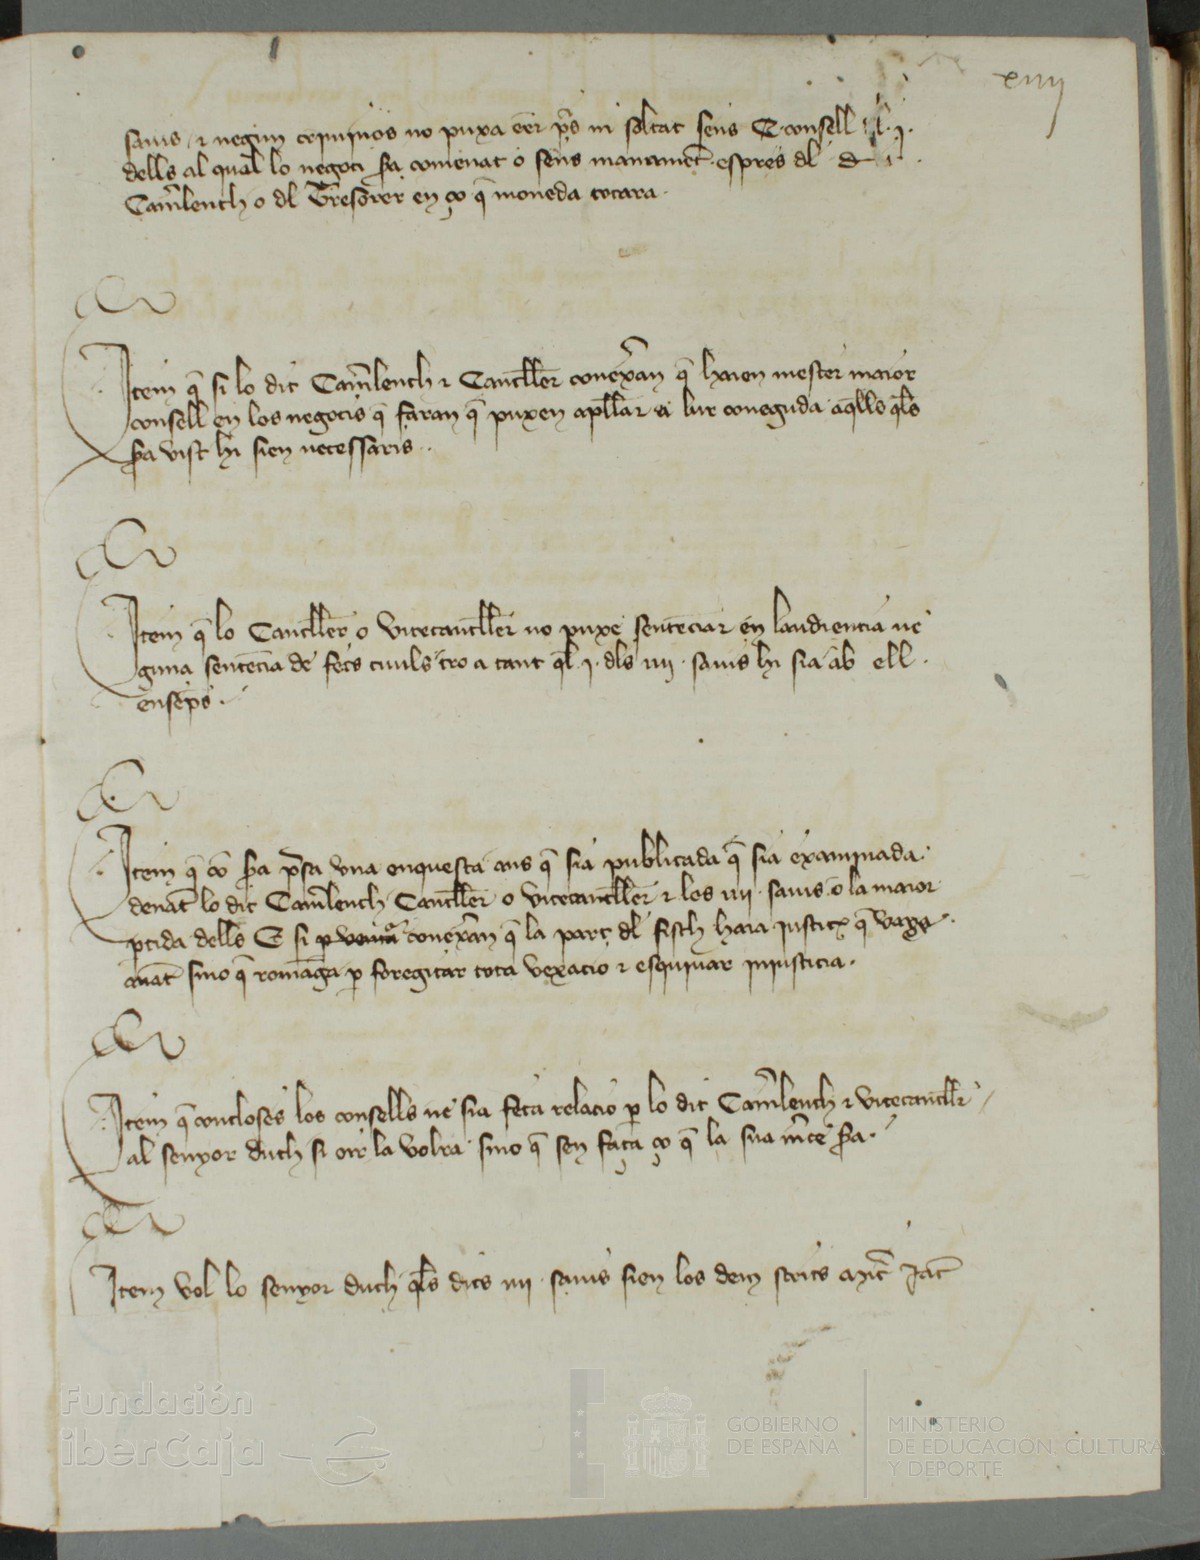 xiiii
savis ⁊ negun criminos no puxa eēr p̄s ni soltat sens consell
dells al qual lo negoci s̄a comenat o sens manament espres dl
Cam̄lench o dl Tresorer en ço q̄ moneda tocara.
Item q̄ si lo dit Cam̄lench ⁊ Canceller conexran q̄ haien mester maior
consell en los negocis q̄ faran q̄ puxen apellar a lur coneguda aq̄lls q̄ls
s̄a vist hi sien necessaris.
Item q̄ lo Canceller o vicecanceller no puxe sentenciar en laudiencia ne
guna sentencia de fets civils tro a tant q̄l .j. dls iiii. savis hi sia ab ell.
ensēps.
Item q̄ cō s̄a p̄sa una enquesta ans q̄ sia publicada q̄ sia examinada.
denāt lo dit Cam̄lench Canceller o vicecanceller ⁊ los iiii. savis o la maior
ptida dells E si conexran q̄ la part dl fisch haia justicia q̄ vage
avāt sino q̄ romāga p foregitar tota vexacio ⁊ esquivar injusticia.
Item q̄ concloses los consells ne sia feta relacio p lo dit Cam̄lench ⁊ vicecanceller
al senyor duch si oir la volra sino q̄ sen faça ço q̄ la sua m̄ce s̄a.
Item vol lo senyor duch q̄ls dits iiii. savis sien los dem scrits
Fundación
iberCaja
GOBIERNO
DE ESPAÑA
MINISTERIO
DE EDUCACIÓN, CULTURA
Y DEPORTE